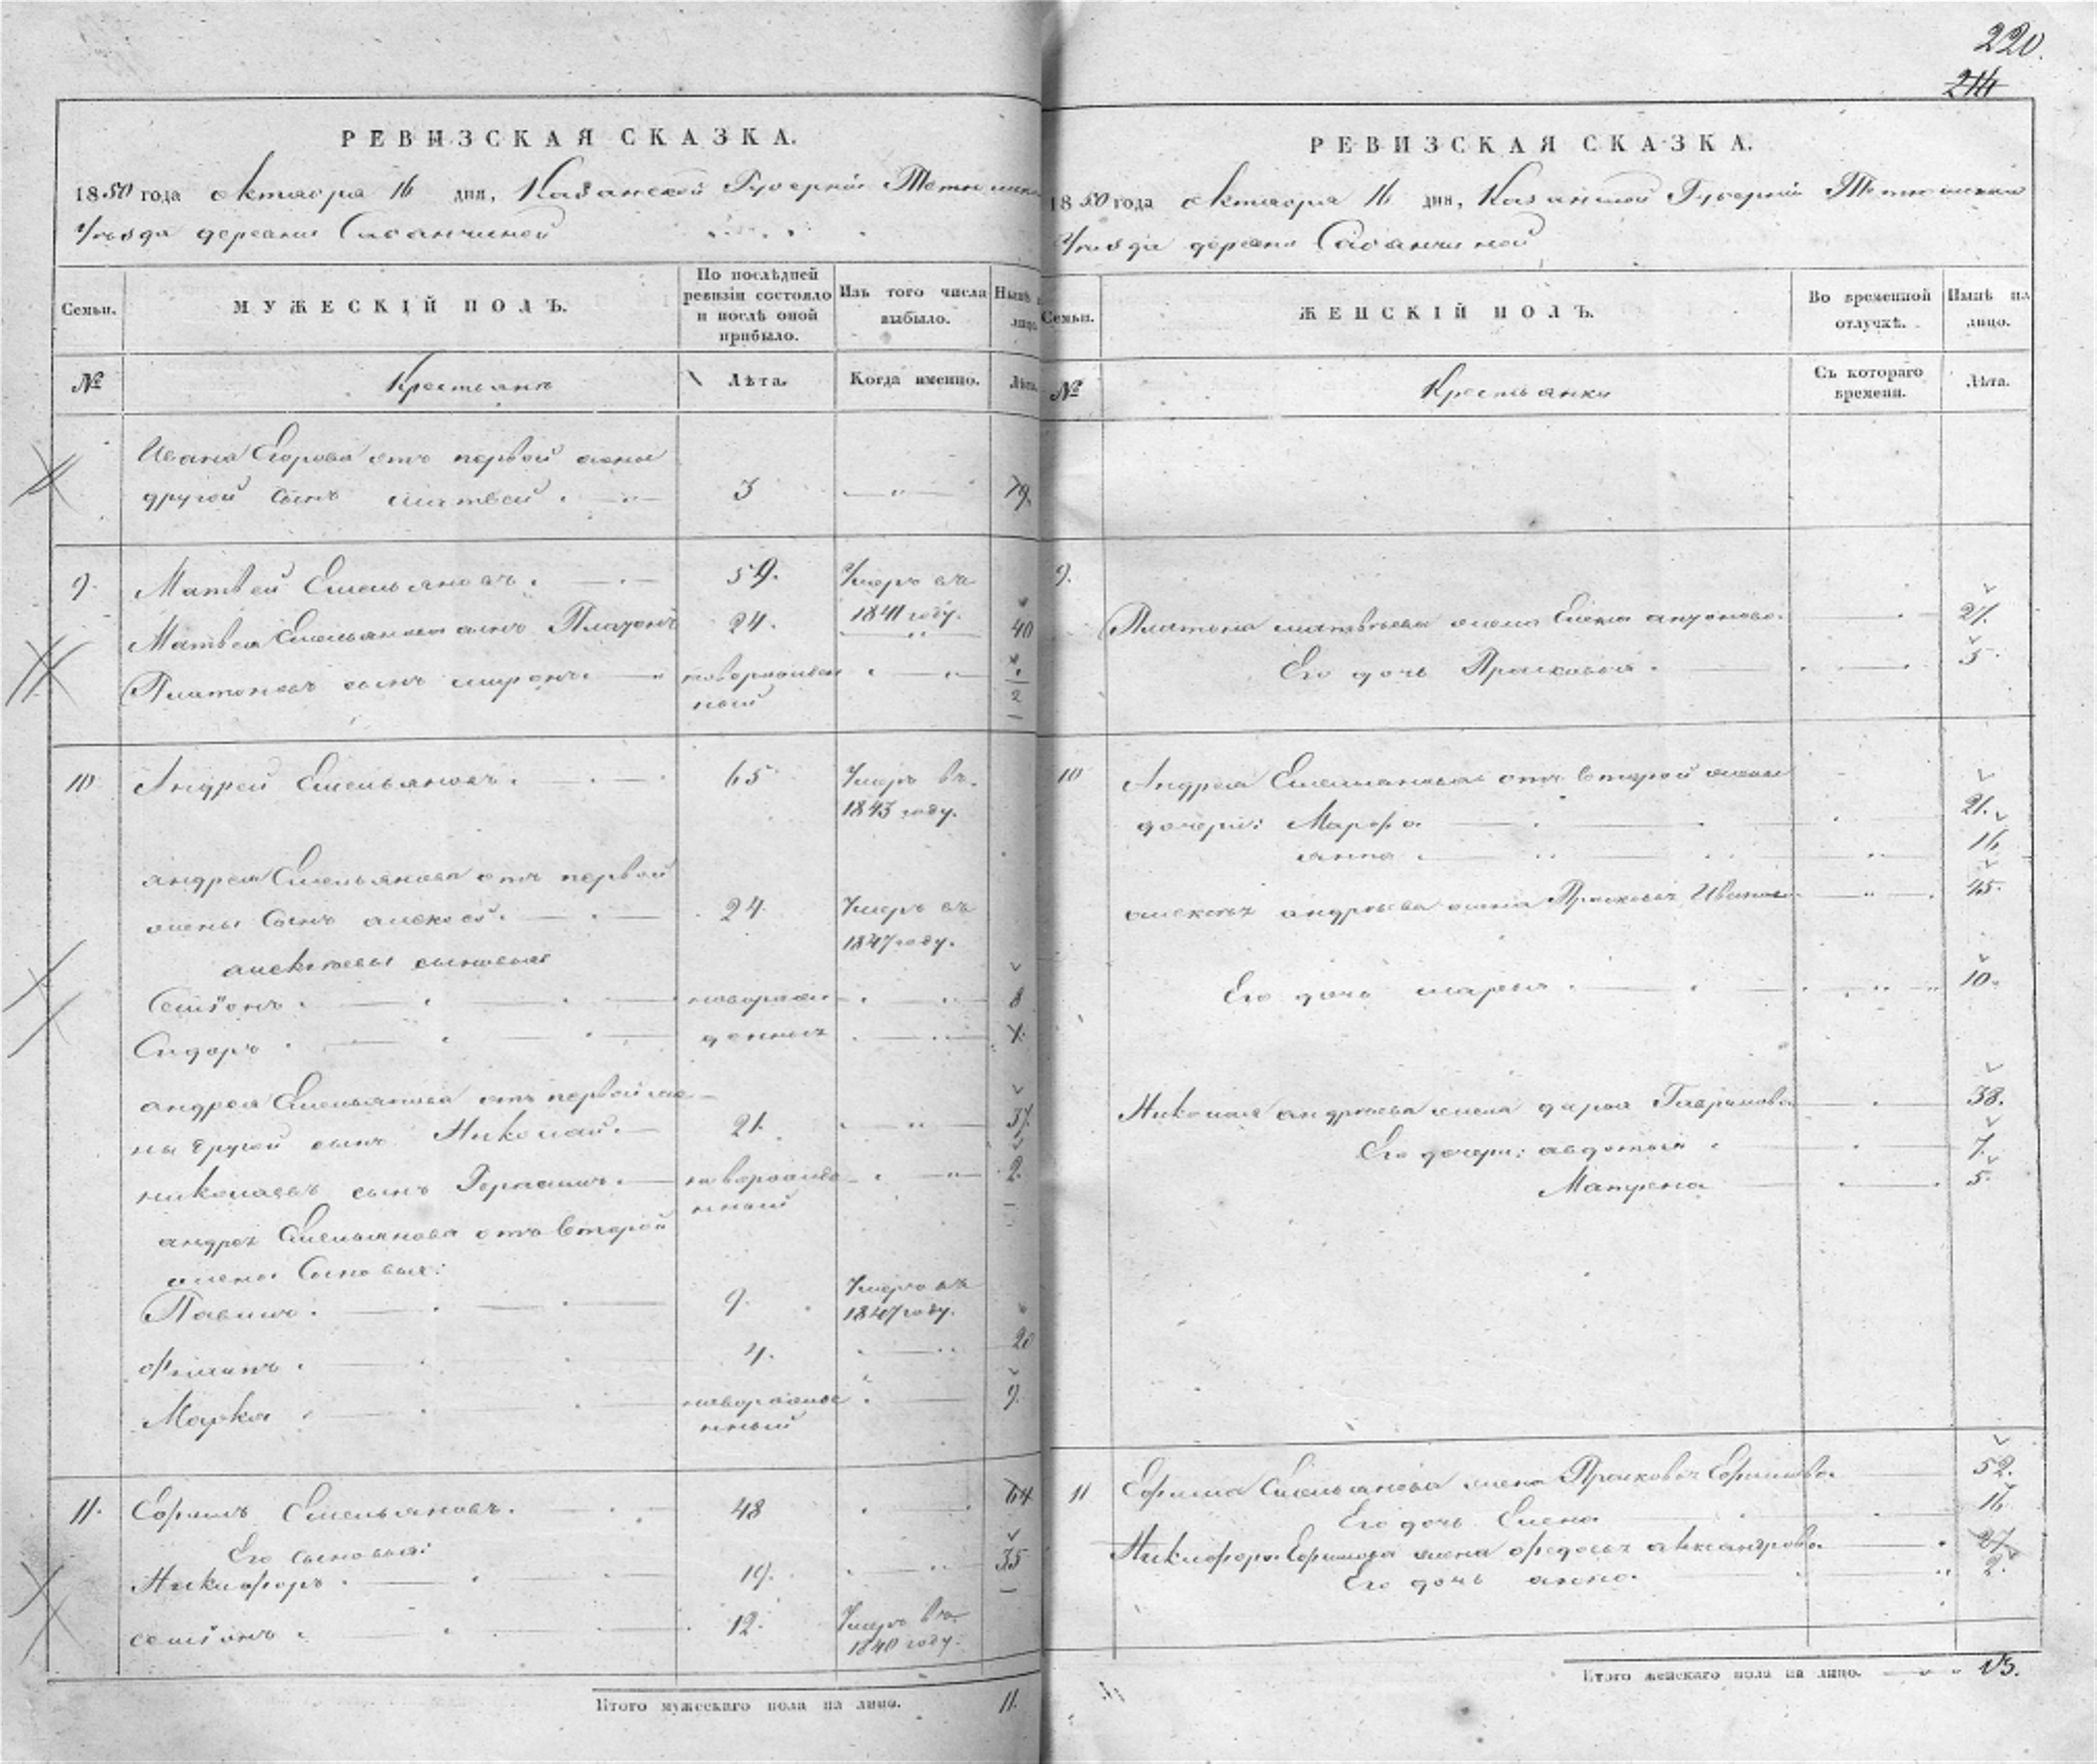 220.
214
РЕВИЗСКАЯ СКАЗКА.
1850 года октября 16 дня, Казанской Губернии
Уезда деревни
Семьи.
МУЖЕСКІЙ ПОЛЪ.
По послѣдней ревизіи состояло и послѣ оной прибыло.
Изъ того числа выбыло.
Нынѣ
лицо
№
Крестьянъ
Лѣта.
Когда именно.
Лѣта.
Ивана Егорова отъ первой жены
другой сынъ Матвей
3
19.
9.
Матвей Емельяновъ.
59.
Умеръ въ
1841 году.
Матвея Емельянова сынъ Платонъ
24.
40
Платоновъ сынъ Миронъ.
новорожден
ный
2
10
Андрей Емельяновъ.
65
Умеръ въ
1843 году.
Андрея Емельянова отъ первой
жены сынъ Алексей.
24
Умеръ въ
1847 году.
Алексеевы сыновья
Семіонъ.
новорож
8
Сидоръ
денных
Андрея Емельянова отъ первой же
ны другой сынъ Николай.
21.
37.
Николаевъ сынъ Герасимъ.
новорожде
нный
2.
Андрея Емельянова отъ второй
жены сыновья:
Павелъ.
9.
Умеръ въ
1847 году.
Филипъ.
4.
20
Марка
новорожде
нный
9.
11.
Ефимъ Емельяновъ.
48
64
Его сыновья:
Никифоръ.
19.
35
Семіонъ.
12.
Умеръ въ
1840 году.
Итого мужескаго пола на лицо.
11.
РЕВИЗСКАЯ СКАЗКА.
1850 года октября 16 дня, Казанской Губернии
Уезда деревни
Семьи.
ЖЕНСКІЙ ПОЛЪ.
Во временной отлучкѣ.
Нынѣ на лицо.
№
Крестьянки
Съ котораго времени.
Лѣта.
9.
Платона Матвеева жена Елена
27.
Его дочь Прасковья.
5.
10
Андрея Емельянова отъ второй жены
дочери: Марфа
21.
Анна.
16
Алексея Андреева жена Прасковья Иванова
45.
Его дочь Марья.
10.
Николая Андреева жена Дарья Гаврилова
38.
Его дочери: Авдотья
7.
Матрена
5.
11
Ефима Емельянова жена Прасковья Ефимова
52.
Его дочь Елена
16
Никифора Ефимова жена Федосья Александрова
27
Его дочь Анна.
2.
Итого женскаго пола на лицо.
13.